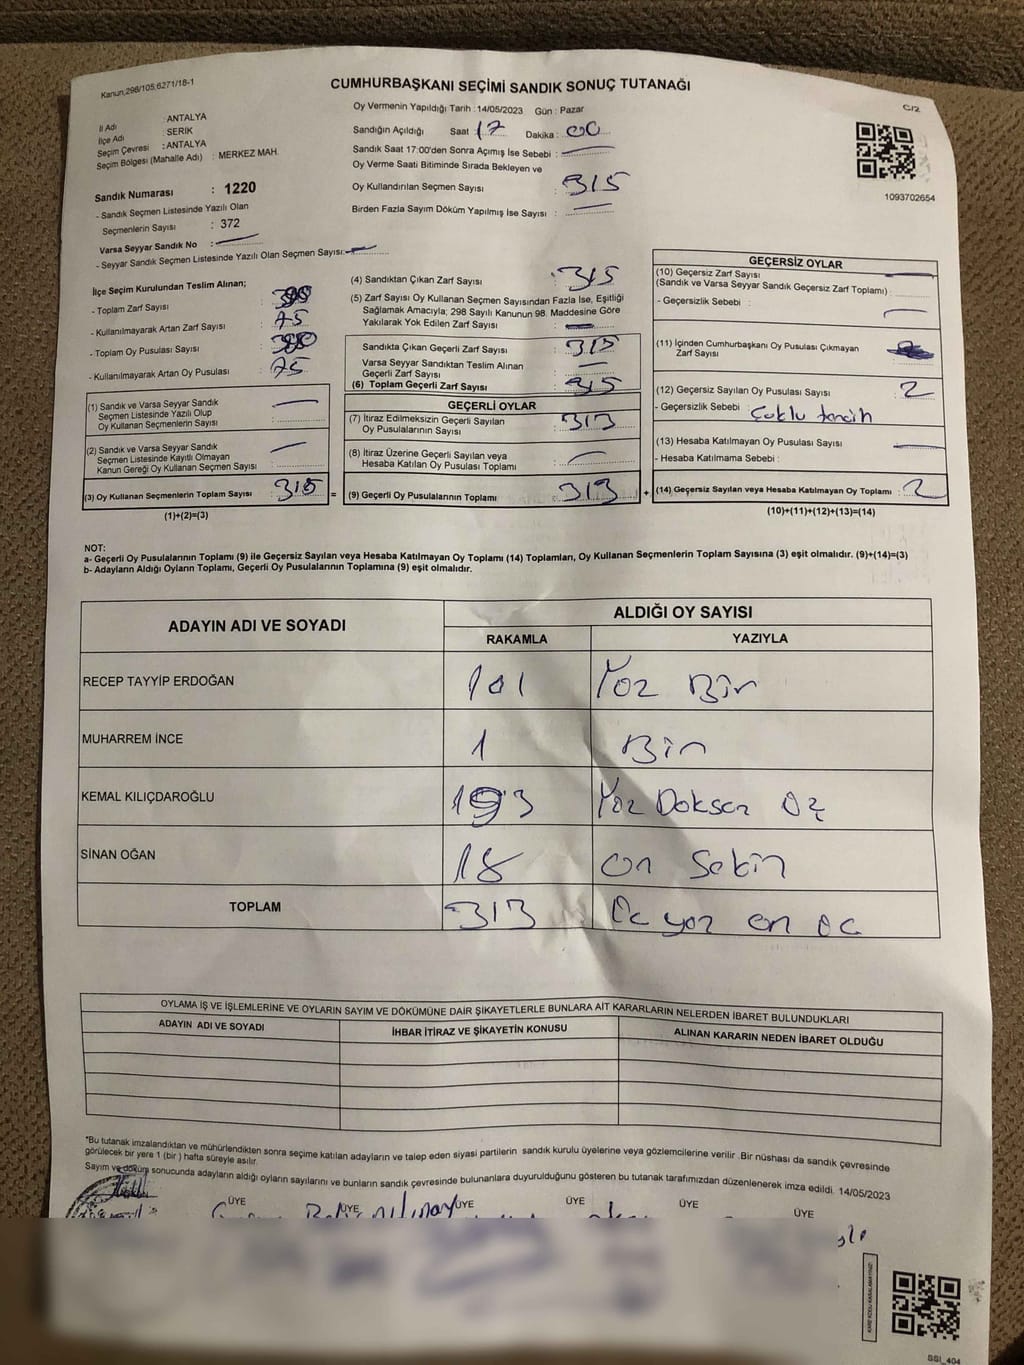 Kanun,298/105;6271/18-1
CUMHURBAŞKANI SEÇİMİ SANDIK SONUÇ TUTANAĞI
C/2
İl Adı : ANTALYA
İlçe Adı : SERİK
Seçim Çevresi : ANTALYA
Seçim Bölgesi (Mahalle Adı) : MERKEZ MAH.
Sandık Numarası : 1220
- Sandık Seçmen Listesinde Yazılı Olan
Seçmenlerin Sayısı : 372
Varsa Seyyar Sandık No :
- Seyyar Sandık Seçmen Listesinde Yazılı Olan Seçmen Sayısı:
Oy Vermenin Yapıldığı Tarih :14/05/2023 Gün : Pazar
Sandığın Açıldığı Saat : 17 Dakika : 00
Sandık Saat 17:00'den Sonra Açımış İse Sebebi :
Oy Verme Saati Bitiminde Sırada Bekleyen ve
Oy Kullandırılan Seçmen Sayısı : 315
Birden Fazla Sayım Döküm Yapılmış İse Sayısı :
1093702654
İlçe Seçim Kurulundan Teslim Alınan;
- Toplam Zarf Sayısı :
- Kullanılmayarak Artan Zarf Sayısı : 75
- Toplam Oy Pusulası Sayısı :
- Kullanılmayarak Artan Oy Pusulası : 75
(1) Sandık ve Varsa Seyyar Sandık
Seçmen Listesinde Yazılı Olup
Oy Kullanan Seçmenlerin Sayısı :
(2) Sandık ve Varsa Seyyar Sandık
Seçmen Listesinde Kayıtlı Olmayan
Kanun Gereği Oy Kullanan Seçmen Sayısı :
(3) Oy Kullanan Seçmenlerin Toplam Sayısı : 315 =
(1)+(2)=(3)
(4) Sandıktan Çıkan Zarf Sayısı : 315
(5) Zarf Sayısı Oy Kullanan Seçmen Sayısından Fazla İse, Eşitliği
Sağlamak Amacıyla; 298 Sayılı Kanunun 98. Maddesine Göre
Yakılarak Yok Edilen Zarf Sayısı :
Sandıkta Çıkan Geçerli Zarf Sayısı : 315
Varsa Seyyar Sandıktan Teslim Alınan
Geçerli Zarf Sayısı :
(6) Toplam Geçerli Zarf Sayısı : 315
GEÇERLİ OYLAR
(7) İtiraz Edilmeksizin Geçerli Sayılan
Oy Pusulalarının Sayısı : 313
(8) İtiraz Üzerine Geçerli Sayılan veya
Hesaba Katılan Oy Pusulası Toplamı :
(9) Geçerli Oy Pusulalarının Toplamı : 313 +
GEÇERSİZ OYLAR
(10) Geçersiz Zarf Sayısı
(Sandık ve Varsa Seyyar Sandık Geçersiz Zarf Toplamı) :
- Geçersizlik Sebebi :
(11) İçinden Cumhurbaşkanı Oy Pusulası Çıkmayan
Zarf Sayısı :
(12) Geçersiz Sayılan Oy Pusulası Sayısı : 2
- Geçersizlik Sebebi : Çoklu tercih
(13) Hesaba Katılmayan Oy Pusulası Sayısı :
- Hesaba Katılmama Sebebi :
(14) Geçersiz Sayılan veya Hesaba Katılmayan Oy Toplamı : 2
(10)+(11)+(12)+(13)=(14)
NOT:
a- Geçerli Oy Pusulalarının Toplamı (9) ile Geçersiz Sayılan veya Hesaba Katılmayan Oy Toplamı (14) Toplamları, Oy Kullanan Seçmenlerin Toplam Sayısına (3) eşit olmalıdır. (9)+(14)=(3)
b- Adayların Aldığı Oyların Toplamı, Geçerli Oy Pusulalarının Toplamına (9) eşit olmalıdır.
ADAYIN ADI VE SOYADI ALDIĞI OY SAYISI
RAKAMLA YAZIYLA
RECEP TAYYİP ERDOĞAN 101 Yüz Bir
MUHARREM İNCE 1 Bir
KEMAL KILIÇDAROĞLU 193 Yüz Doksan Üç
SİNAN OĞAN 18 on Sekiz
TOPLAM 313 Üç yüz on üç
OYLAMA İŞ VE İŞLEMLERİNE VE OYLARIN SAYIM VE DÖKÜMÜNE DAİR ŞİKAYETLERLE BUNLARA AİT KARARLARIN NELERDEN İBARET BULUNDUKLARI
ADAYIN ADI VE SOYADI İHBAR İTİRAZ VE ŞİKAYETİN KONUSU ALINAN KARARIN NEDEN İBARET OLDUĞU
*Bu tutanak imzalandıktan ve mühürlendikten sonra seçime katılan adayların ve talep eden siyasi partilerin sandık kurulu üyelerine veya gözlemcilerine verilir .Bir nüshası da sandık çevresinde
görülecek bir yere 1 (bir ) hafta süreyle asılır.
Sayım ve döküm sonucunda adayların aldığı oyların sayılarını ve bunların sandık çevresinde bulunanlara duyurulduğunu gösteren bu tutanak tarafımızdan düzenlenerek imza edildi. 14/05/2023
ÜYE ÜYE ÜYE ÜYE ÜYE ÜYE
KARE KODU KARALAMAYINIZ!
SSI_404